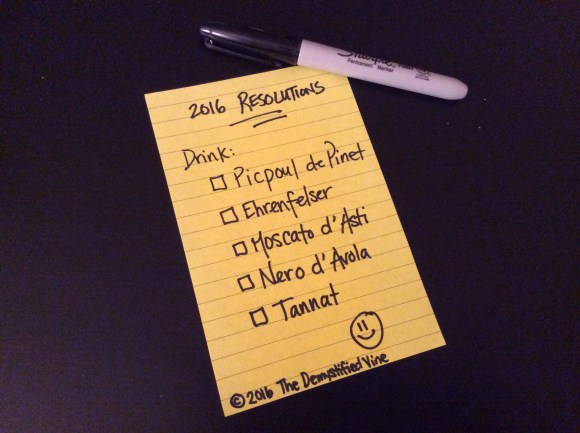 Sharpie
Permanent Marker
2016 RESOLUTIONS
Drink:
Picpoul de Pinet
Ehrenfelser
Moscato d'Asti
Nero d'Avola
Tannat
©2016 The Demystified Vine